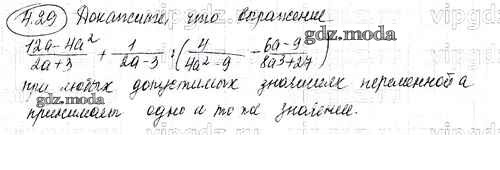 4.29 Докажите, что выражение
12a-4a²/2a+3 + 1/2a-3 : (4/4a²-9 - 6a-9/8a³+27)
при любых допустимых значениях переменной a
принимает одно и то же значение.
gdz.moda
gdz.moda
gdz.moda
vipgdz
vipgdz